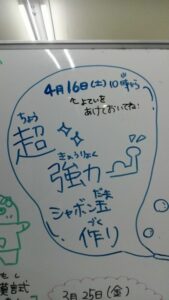 4月16日(土)10時から
よていを
あけておいてね!
ちょう
超
きょうりょく
強力
だま
シャボン玉
づく
作り
3月25日(金)